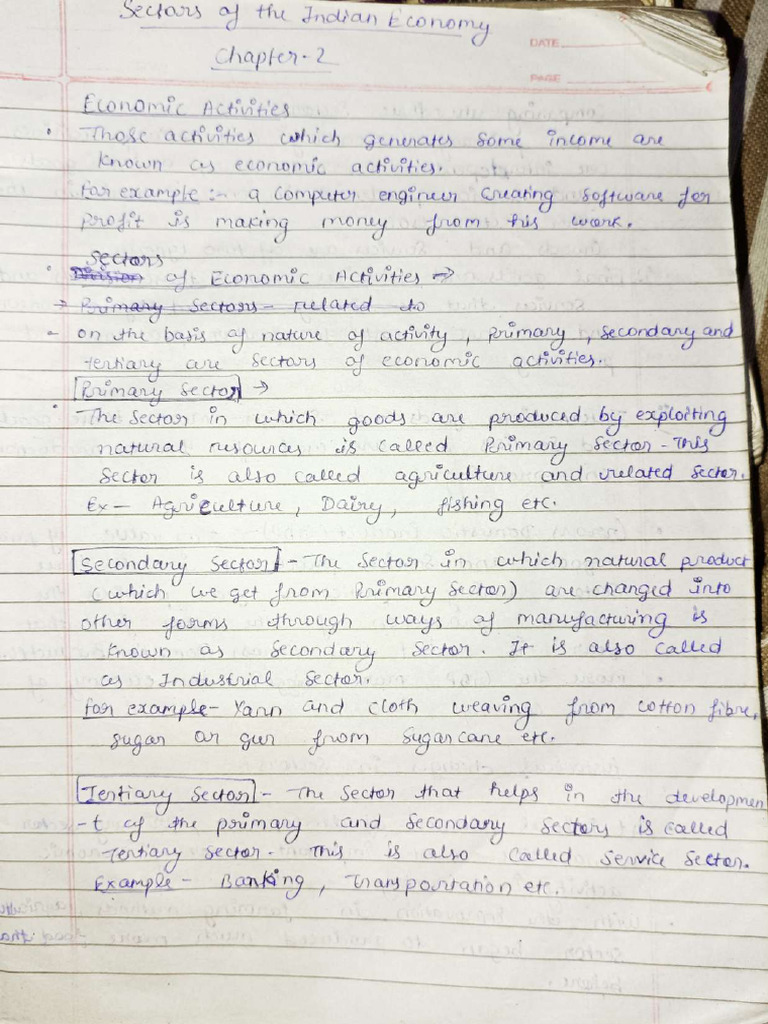 Sectors of the Indian Economy
Chapter-2
DATE
PAGE
Economic Activities
• Those activities which generates some income are
known as economic activities.
for example :- a computer engineer creating software for
profit is making money from his work.
Sectors
• Division of Economic Activities →
→ Primary Sectors - related to
- on the basis of nature of activity, primary, secondary and
tertiary are sectors of economic activities.
Primary Sector →
• The sector in which goods are produced by exploiting
natural resources is called Primary Sector - This
sector is also called agriculture and related sector.
Ex - Agriculture, Dairy, fishing etc.
Secondary Sector - The sector in which natural product
(which we get from Primary Sector) are changed into
other forms through ways of manufacturing is
known as Secondary Sector. It is also called
as Industrial Sector.
for example - Yarn and cloth weaving from cotton fibre,
sugar or gur from sugarcane etc.
Tertiary Sector - The sector that helps in the developmen
-t of the primary and secondary sectors is called
Tertiary sector - This is also called service sector.
Example - Banking, Transportation etc.